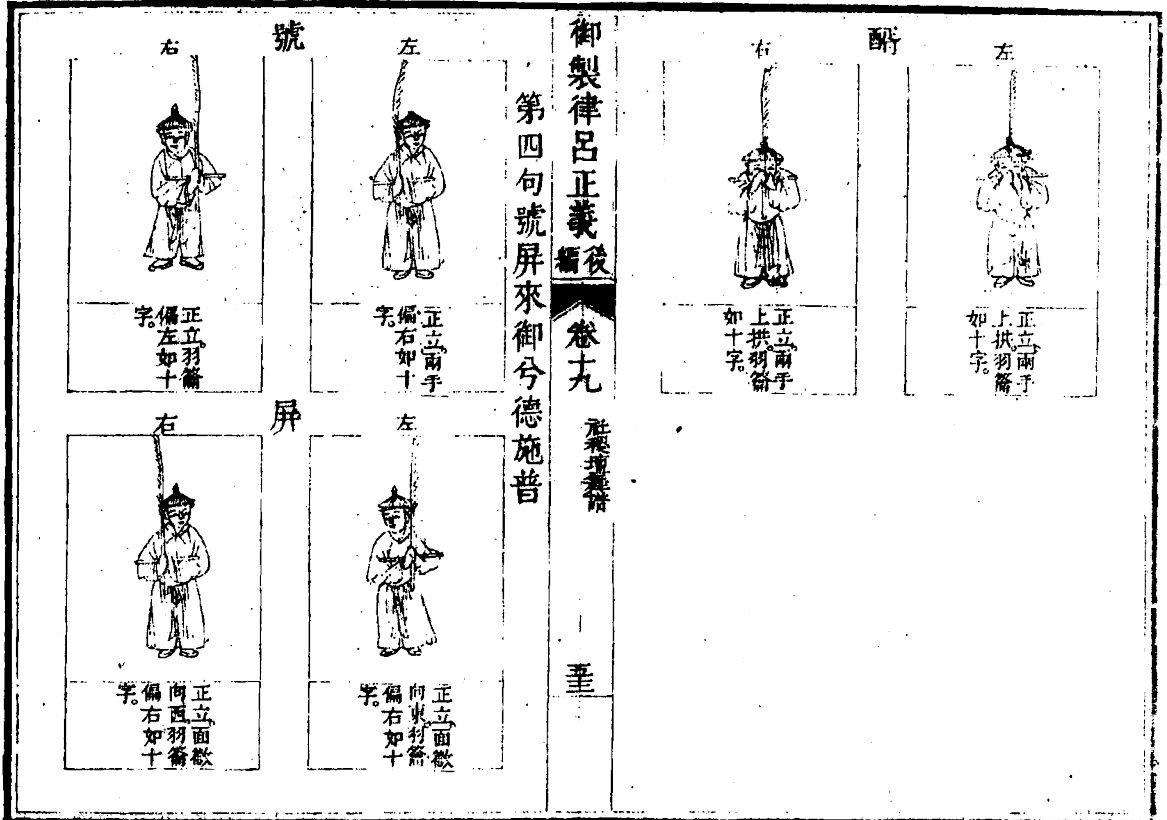 左
正立、兩手
上拱、羽籥
如十字。
右
正立、兩手
上拱、羽籥
如十字。
御製律呂正義後編
卷十九
社稷壇舞譜
第四句號屏來御兮德施普
號
左
正立、兩手
偏右如十
字。
右
正立、羽籥
偏左如十
字。
屏
左
正立、面微
向東、羽籥
偏右如十
字。
右
正立、面微
向西、羽籥
偏右如十
字。